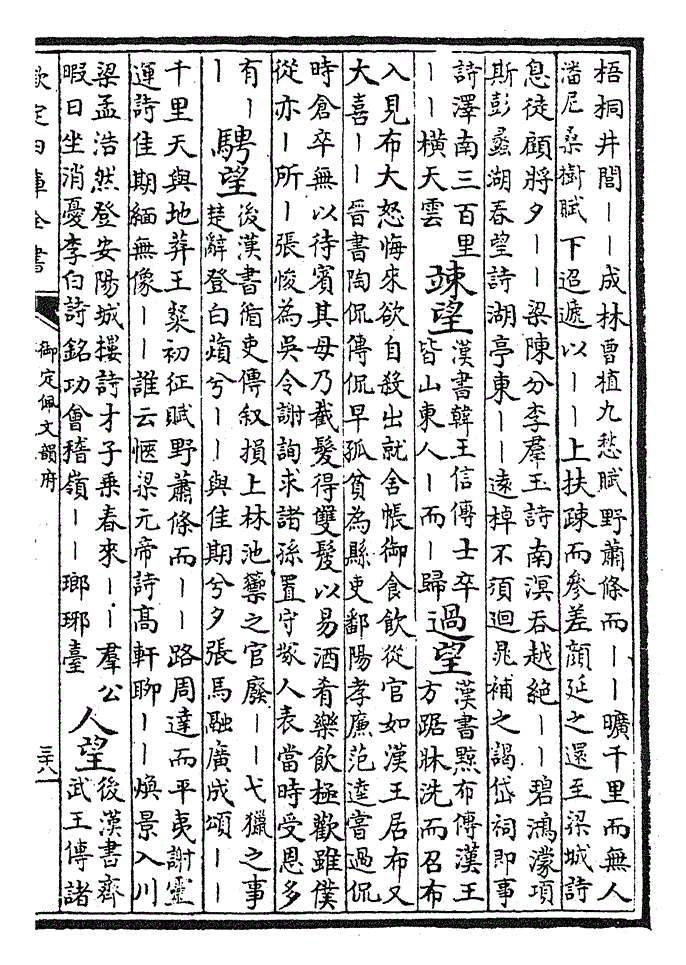 梧桐井閭丨丨成林曹植九愁賦野蕭條而丨丨曠千里而無人
潘尼桑樹賦下迢遞以丨丨上扶疎而參差顔延之還至梁城詩
息徒顧將夕丨丨梁陳分李羣玉詩南溟吞越絶丨丨碧鴻濛項
斯彭蠡湖春望詩湖亭東丨丨遠棹不須迴晁補之謁岱祠即事
詩澤南三百里
丨丨橫天雲
竦望
漢書韓王信傳士卒
皆山東人丨而丨歸
過望
漢書黥布傳漢王
方踞牀洗而召布
入見布大怒悔來欲自殺出就舍帳御食飲從官如漢王居布又
大喜丨丨晉書陶侃傳侃早孤貧為縣吏鄱陽孝廉范逵嘗過侃
時倉卒無以待賓其母乃截髮得雙髲以易酒肴樂飲極歡雖僕
從亦丨所丨張悛為吳令謝詢求諸孫置守冢人表當時受恩多
有丨
丨
騁望
後漢書循吏傳叙損上林池籞之官廢丨丨弋獵之事
楚辭登白薠兮丨丨與佳期兮夕張馬融廣成頌丨丨
千里天與地莽王粲初征賦野蕭條而丨丨路周達而平夷謝靈
運詩佳期緬無像丨丨誰云愜梁元帝詩髙軒聊丨丨煥景入川
梁孟浩然登安陽城樓詩才子乗春來丨丨羣公
暇日坐消憂李白詩銘功會稽嶺丨丨瑯琊臺
人望
後漢書齊
武王傳諸
欽定四庫全書
御定佩文韻府
三十八